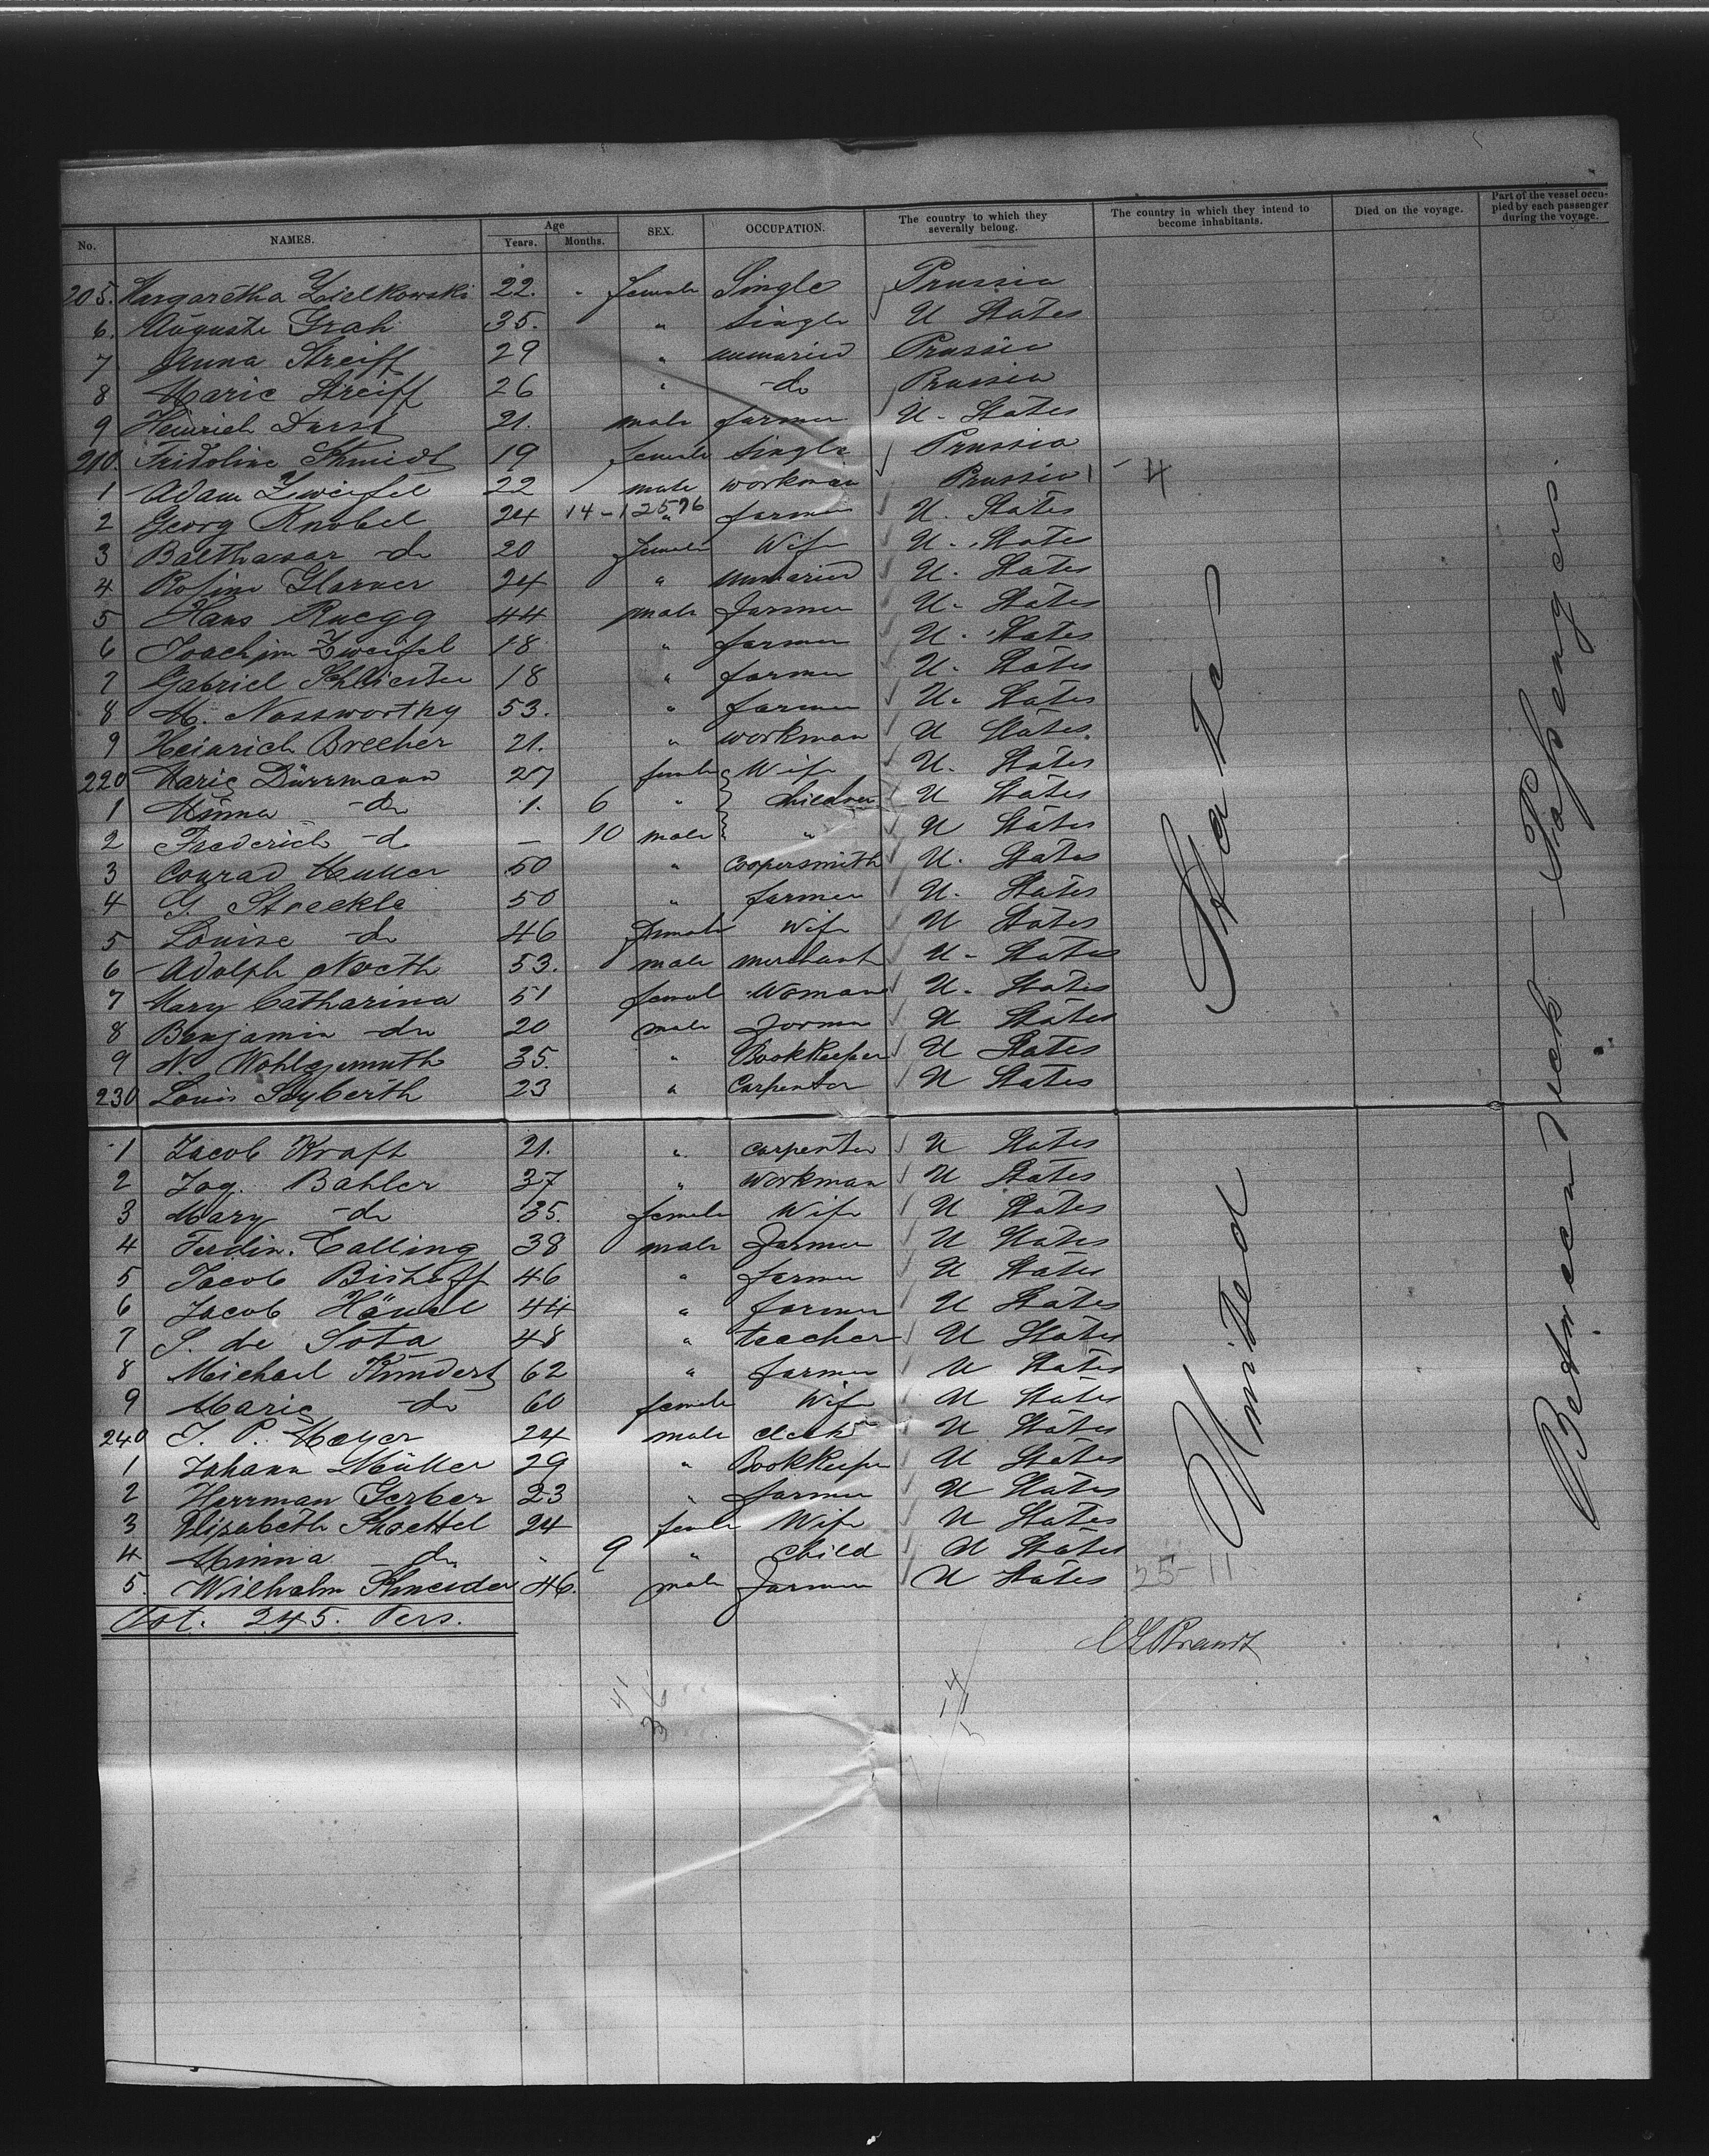 No. NAMES. Age Years. Months. SEX. OCCUPATION. The country to which they severally belong. The country in which they intend to become inhabitants. Died on the voyage. Part of the vessel occupied by each passenger during the voyage.
205. Margaretha Zielkowski 22. - female Single Prussia
6. Auguste Grah 35. " single U States
7 Anna Streiff 29 " unmaried Prussia
8 Marie Streiff 26 " do Prussia
9 Heinrich Durst 21. male farmer U. States
210. Fridoline Schmidt 19 female single Prussia
1 Adam Zweifel 22 male workman Prussia 1 - 4
2 Georg Knobel 24 14-12576 " farmer U. States
3 Balthasar do 20 female Wife U. States
4 Rosine Glarner 24 " unmaried U. States
5 Hans Ruegg 44 male farmer U. States
6 Joachim Zweifel 18 " farmer U. States
7 Gabriel 18 " farmer U. States
8 M. Nossworthy 53. " farmer U. States
9 Heinrich Brecher 21. " workman U States
220 Marie Dürrmann 27 female Wife U. States
1 Minna do 1. 6 " children U States
2 Frederich do - 10 male " U States
3 Conrad Muller 50 " Coopersmith U. States
4 G. Stoeckle 50 " farmer U. States
5 Louise do 46 Female Wife U States
6 Adolph North 53. male merchant U. States
7 Mary Catharina 51 female Woman U. States
8 Benjamin do 20 male Farmer U States
9 N. Wohlgemuth 35. " Bookkeeper U States
230 Louis Seyberth 23 " Carpenter U States
1 Jacob Kraft 21. " carpenter U States
2 Jog. Bahler 37 " workman U States
3 Mary do 35. female Wife U States
4 Ferdin. Calling 38 male Farmer U States
5 Jacob Bishoff 46 " farmer U States
6 Jacob 44 " farmer U States
7 S. de Sota 48 " teacher U States
8 Michael Kundert 62 " farmer U States
9 Marie do 60 female Wife U States
240 J. P. Meyer 24 male clerk U States
1 Johann Müller 29 " Bookkeeper U States
2 Herrman Gerber 23 " farmer U States
3 Elisabeth 24 female Wife U States
4 Minna do " 9 " Child U States
5. Wilhalm Shneider 46. male Farmer U States 25-11
Tot. 245. Pers.
United States
Between deck Passengers.